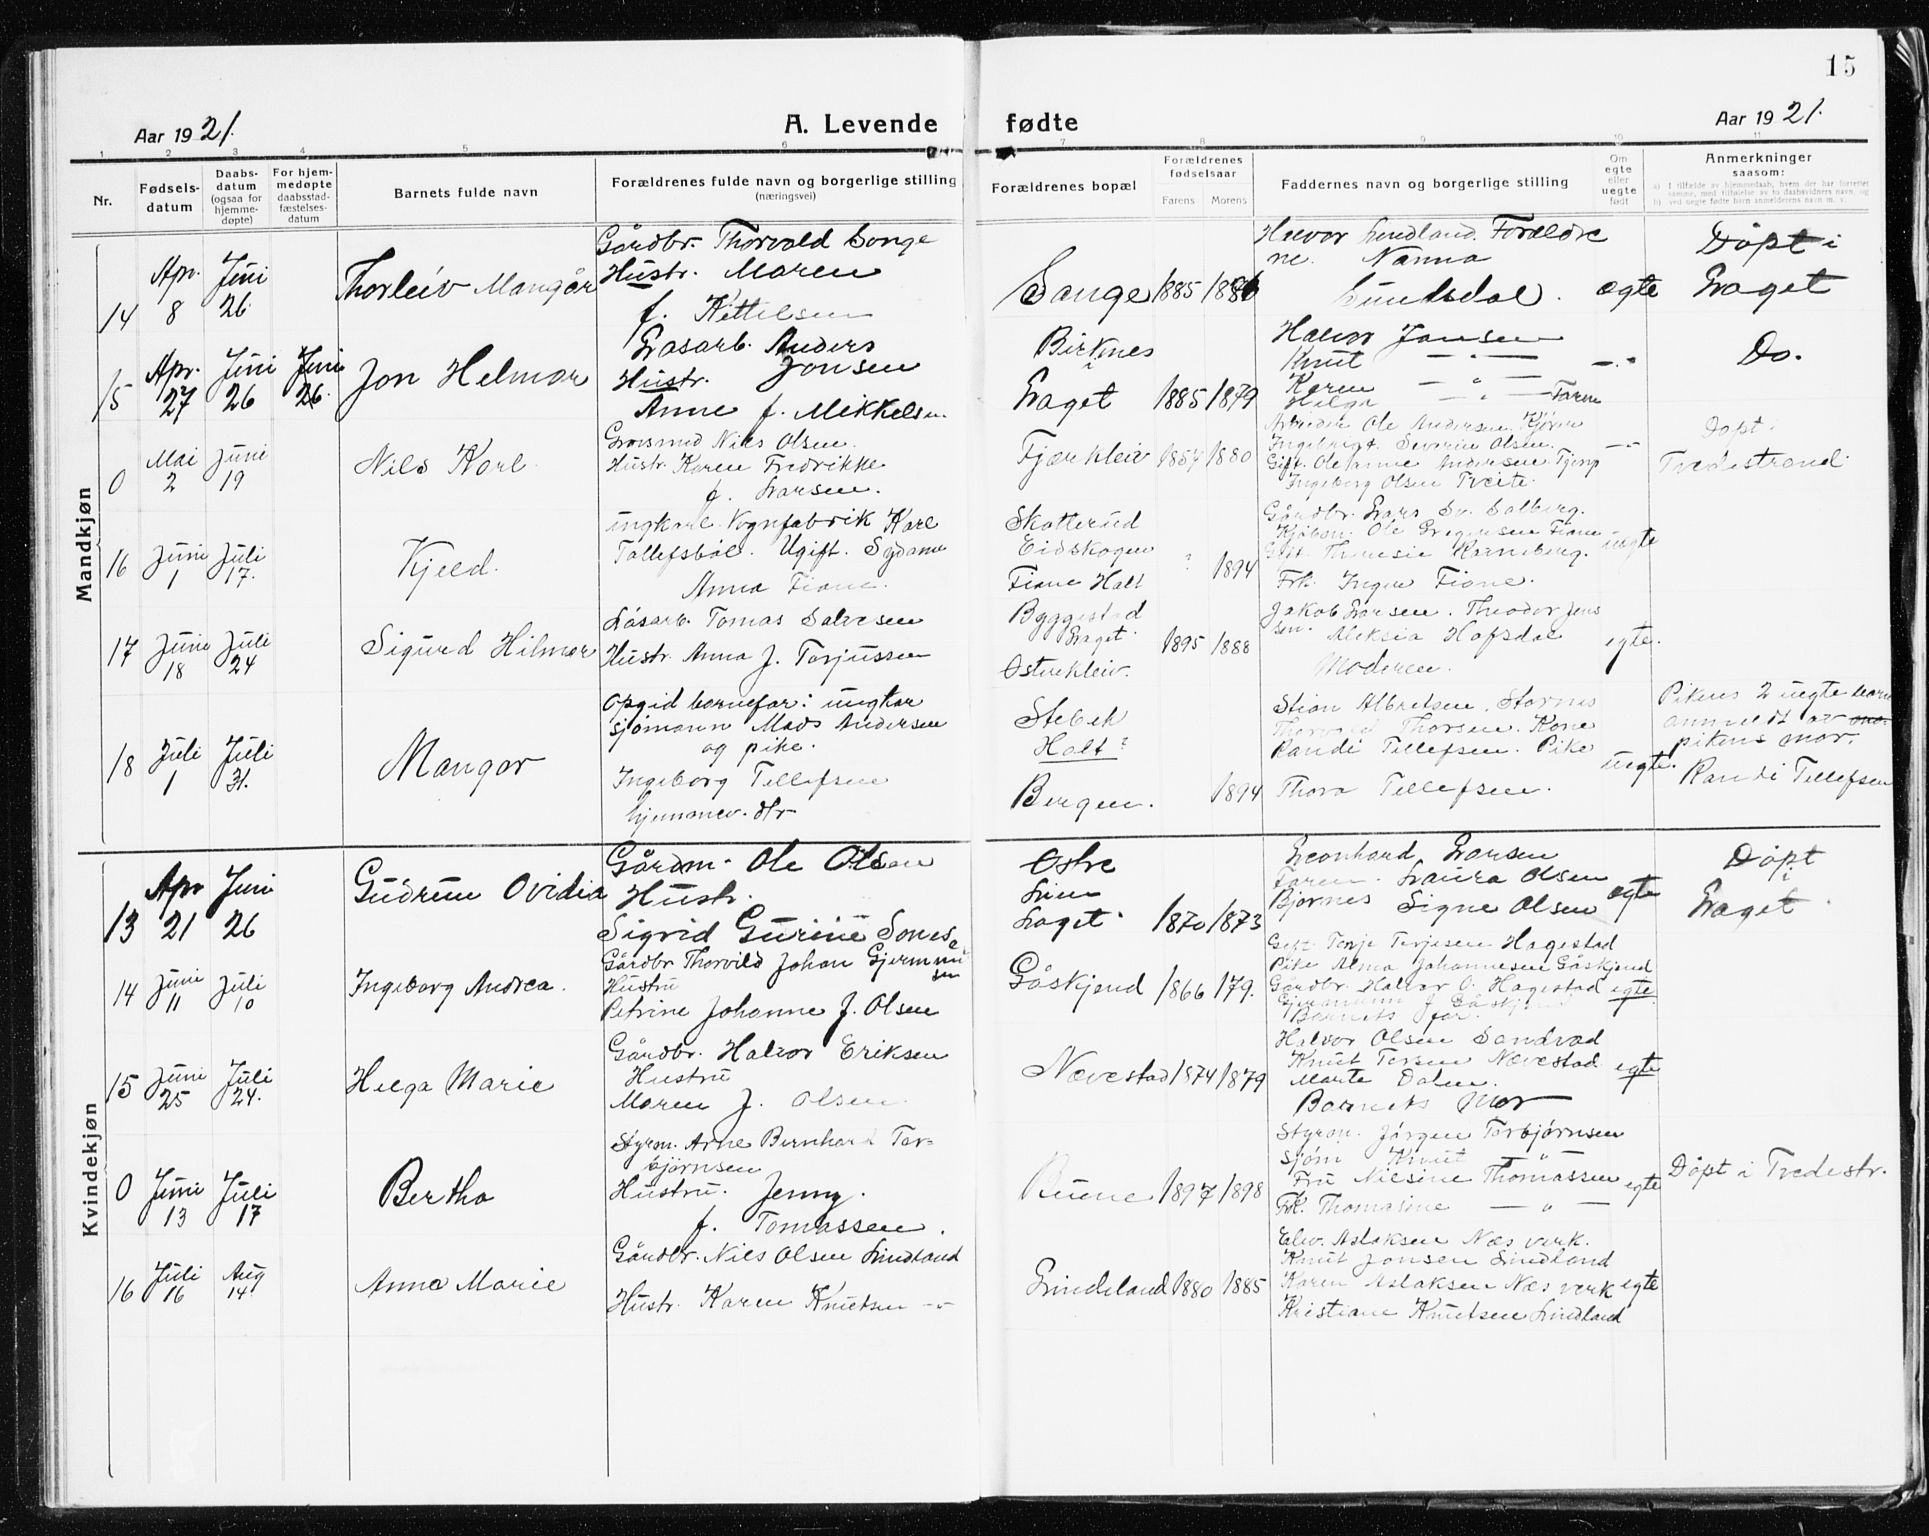 15
Aar 1921.
A. Levende fødte
Aar 1921.
1 2 3 4 5 6 7 8 9 10 11
Nr.
Fødsels-
datum
Daabs-
datum
(ogsaa for
hjemme-
døpte)
For hjem-
medøpte
daabsstad-
fæstelses-
datum
Barnets fulde navn
Forældrenes fulde navn og borgerlige stilling
(næringsvei)
Forældrenes bopæl
Forældrenes
fødselsaar
Farens. Morens
Faddernes navn og borgerlig stilling
Om
egte
eller
uegte
født
Anmerkninger
saasom:
a) I tilfælde av hjemmedaab, hvem der har forrettet
samme, med tilføielse av to daabsvidners navn, og
b) ved uegte fødte barn anmelderens navn m. v.
Mandkjøn
14 Apr. 8 Juni 26
Thorleiv Mangår
Gårdbr. Thorvald Songe
Hustr. Maren
f. Kittelsen
Songe 1885 1886
Halvor Lindland. Foreldre
ne. Nanna
Sundsdal.
egte
Døpt i
Laget
15 Apr. 27 Juni 26 Juni 26.
Jon Helmar
Løsarb. Anders
Jonsen
Hustr.
Anne f. Mikkelsen
Birknes
Laget 1885 1879
Halvor Jansen
Knut — " —
Karen — " —
Helga — " — Faren
— " —
Do.
0 Mai 2 Juni 19
Nils Karl
Grovsmed Nils Olsen.
Hustr. Karen Fredrikke
f. Larsen.
Fjærkleiv 1857 1880
Arbeider Ole Andersen
Ingebrigt Severin Olsen.
Gift. Olefanne Andersen
Ingeborg Olsen Tveite.
— " —
Døpt.
Tvedestrand.
16 Juni 1 Juli 17.
Kjell.
ungkarl. Vognfabrik Karl
Tallefsbøl. Ugift. Sydame
Anna Fiane.
Skotterud
Eidskogen
Fiane Halt
? 1894
Gårdbr. Lars Sv. Solberg.
Kjøbm. Ole Gregersen Fiane
Gift. Theresie Karneberg.
Frk. Inger Fiane.
uegte
17 Juni 18 Juli 24
Sigurd Hilmar
Løsarb. Tomas Salvesen
Hustr. Anna f. Torjussen
Byggestad
Laget.
Østerkleiv.
1895 1888
Jakob Larsen. Theodor Jens
sen.
Aleksia Hafsdal
Moderen.
egte.
18 Juli 1 Juli 31.
Mangor
Opgid barnefar: ungkar
sjømann Mads Andersen
og pike.
Ingeborg Tellefsen
hjemmev. dtr
Stebek
Halt?
Bergen.
1894
Stian Albretsen. Stornes
Thorvald Thorsen. Kone
Randi Tellefsen. Pike
Thora Tellefsen.
uegte.
Pikens 2 uegte barn
anmeldt av mo
pikens mor.
Randi Tellefsen
Kvindekjøn
13 Apr 21 Juni 26
Gudrun Ovidia
Gårdm. Ole Olsen
Hustr.
Sigrid Gurine Jonsse
Østre
Lien
Laget. 1870 1873
Leonhard Larsen
Faren. Laura Olsen
Bjørnes Signe Olsen
egte
Døpt
i
Laget
14 Juni 11 Juli 10
Ingeborg Andrea.
Gårdbr. Thorvild Johan Gjermun
sen
Hustru
Petrine Johanne f. Olsen
Gåskjend 1866 179.
Gift Tonje Terjesen Hagestad
Pike Alma Johannesen Gåskjend
Gårdbr. Halvor O. Hagestad
Barnets far.
egte.
15 Juni 25 Juli 24.
Helga Marie
Gårdbr. Halvor Eriksen
Hustru
Maren f. Olsen.
Nævestad 1874 1879
Halvor Olsen Sandvad
Knut Tersen Nævestad
Marte Dalen.
Barnets Mor
egte
0 Juni 13 Juli 17
Bertha
Styrm. Arne Bernhard Tor-
bjørnsen
Hustru. Jenny.
f. Tomassen.
Buene 1897 1898
Styrm. Jørgen Torbjørnsen
Sjøm Knut — " —
Fru Nilsine Thomassen
Frk. Thomasine — " —
egte
Døpt i Tvedestr.
16 Juli 16 Aug 14
Anna Marie
Gårdbr. Nils Olsen Lindland
Hustr. Karen Knutsen — " —
Lindeland 1880 1885
Elev. Aslaksen Næs verk.
Knut Jonsen Lindland
Karen Aslaksen Næs verk
Kristiane Knutsen Lindland
egte